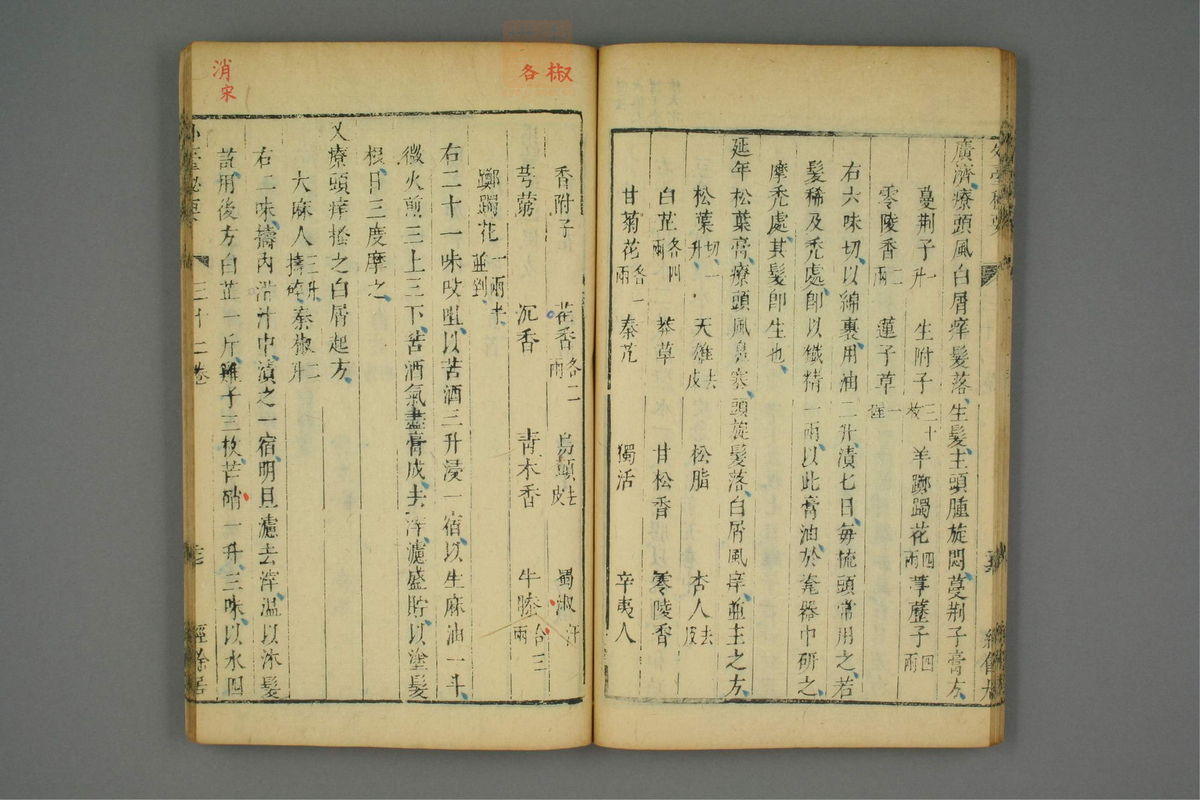 廣濟療頭風白屑痒髮落生髮主頭腫旋悶蔓荆子膏方
蔓荆子一升 生附子三十枚 羊躑躅花四兩 葶藶子四兩
零陵香二兩 蓮子草一握
右六味切以綿裹用油二升漬七日每梳頭常用之若
髮稀及禿處卽以鐵精一兩以此膏油於瓷器中研之
摩禿處其髮卽生也
延年松葉膏療頭風鼻塞頭旋髮落白屑風痒並主之方
松葉切一升 天雄去皮 松脂 杏人去皮
白芷各四兩 莽草 甘松香 零陵香
甘菊花各一兩 秦艽 獨活 辛夷人
香附子 藿香各二兩 烏頭去皮 蜀淑汗
芎藭 沉香 青木香 牛膝各三兩
躑躅花一兩半並剉
右二十一味㕮咀以苦酒三升浸一宿以生麻油一斗
微火煎三上三下苦酒氣盡膏成去滓濾盛貯以塗髮
根日三度摩之
又療頭痒搔之白屑起方
大麻人三升擣碎 秦椒二升
右二味擣內泔汁中漬之一宿明旦濾去滓溫以沐髮
訖用後方白芷一斤雞子三枚芒硝一升三味以水四
外臺秘要 三十二卷 經餘居
椒
各
消
宋